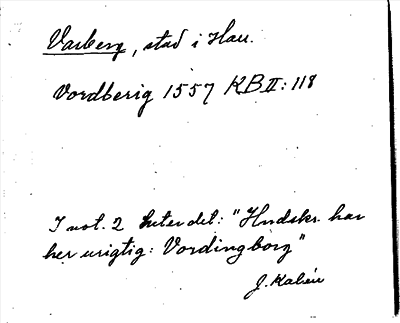 Varberg, stad i Hall.
Vordberig 1557 KB II: 118
I not. 2 heter det: "Hndskr. har
her urigtig: Vordingborg"
J. Kalén